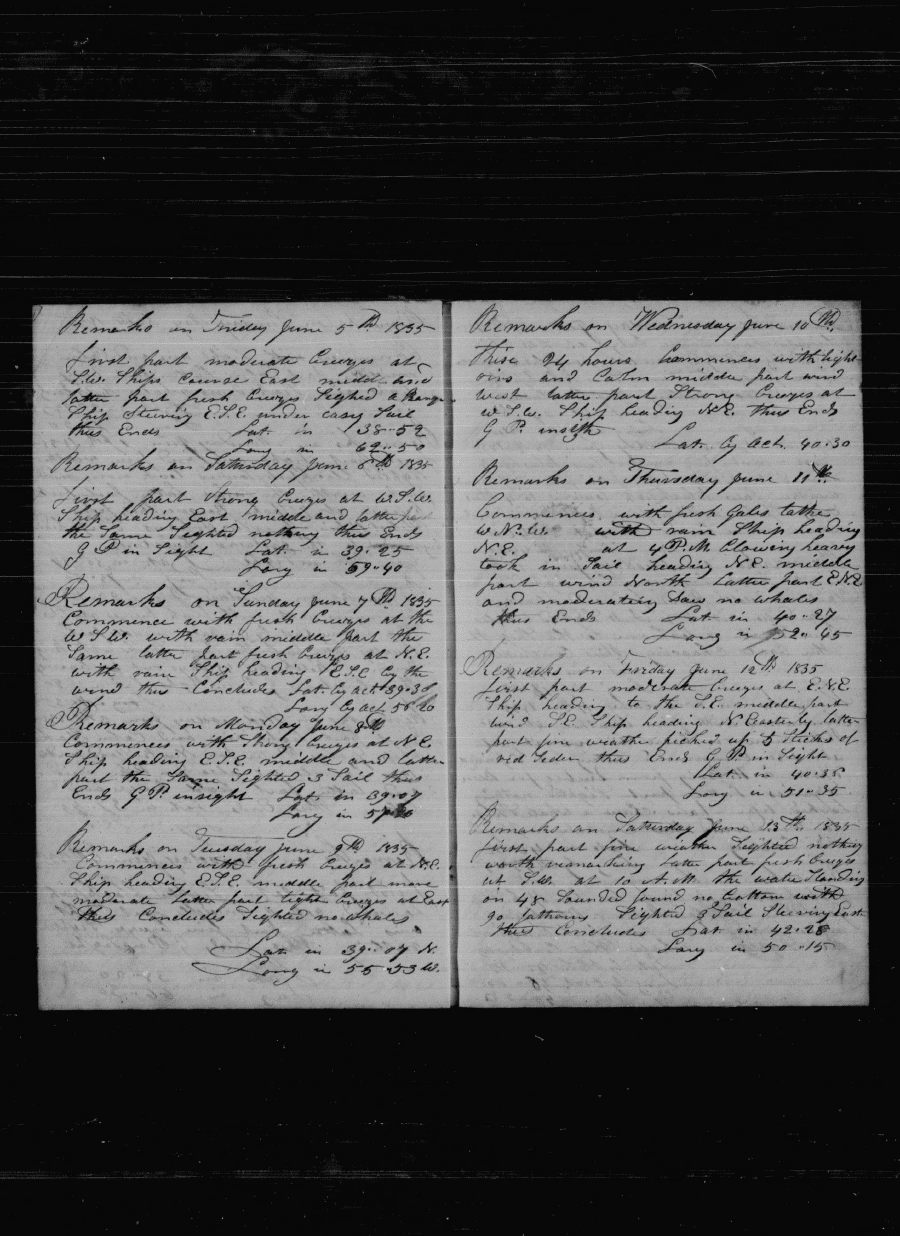 Remarks on Friday June 5th 1835
First part moderate breezes at
S.W. Ships Course East midd and
latter part fresh breezes Sighed a
Ship Stering E.S.E. under easy Sail
thus Ends Lat. in 38..52
Long in 62..50
Remarks on Saturday June 6th 1835
First part Strong breezes at W.S.W.
Ship heading East middle and latter
the Same Sighted nothing thus Ends
G P in Sight Lat. in 39.25
Long in 59..40
Remarks on Sunday June 7th 1835
Commence with fresh breezes at the
W.S.W. with rain middle part the
Same latter part fresh breezes at N.E.
with rain Ship heading S.E. by the
wind thus Concludes Lat by act 39.36
Long by act 56 20
Remarks on Monday June 8th
Commences with Strong breezes at N.E.
Ship heading E.S.E. middle and latter
part the Same Sighted 3 Sail thus
Ends G P. in sight Lat. in 39..07
Long in
Remarks on Tuesday June 9th 1835
Commences with fresh breezes at N.E.
Ship heading E.S.E. middle part more
moderate Latter part light breezes at East
thus Concludes Sighted no whales
Lat in 39..07 N.
Long in 55..53 W.
Remarks on Wednesday June 10th
these 24 hours Commences with light
airs and Calm middle part wind
west latter part Strong breezes at
W.S.W. Ship heading N.E. thus Ends
G P. insight
Lat. by act. 40.30
Remarks on Thursday June 11th
Commences with fresh Gales to the
W.N.W. with rain Ship heading
N.E. at 4 P.M. blowing heavy
took in Sail heading N.E. middle
part wind North Latter part E.N.E.
and moderating Saw no whales
thus Ends Lat in 40..27
Long in 52..45
Remarks on Friday June 12th 1835
first part moderate breezes at E.N.E.
Ship heading to the S.E. middle part
wind S.E. Ship heading N. Easterly latter
part fine weather picked up 5 Sticks of
red Seder thus Ends G P. in Sight
Lat in 40.36
Long in 51..35
Remarks on Saturday June 13th 1835
first part fine weather Sighted nothing
worth remarking latter part fresh breezes
at S.W. at 10 A.M. the water Standing
on 48 Sounded found no bottom with
90 fathoms Sighted Sail Steering East
thus Concludes Lat in 42.28
Long in 50..15